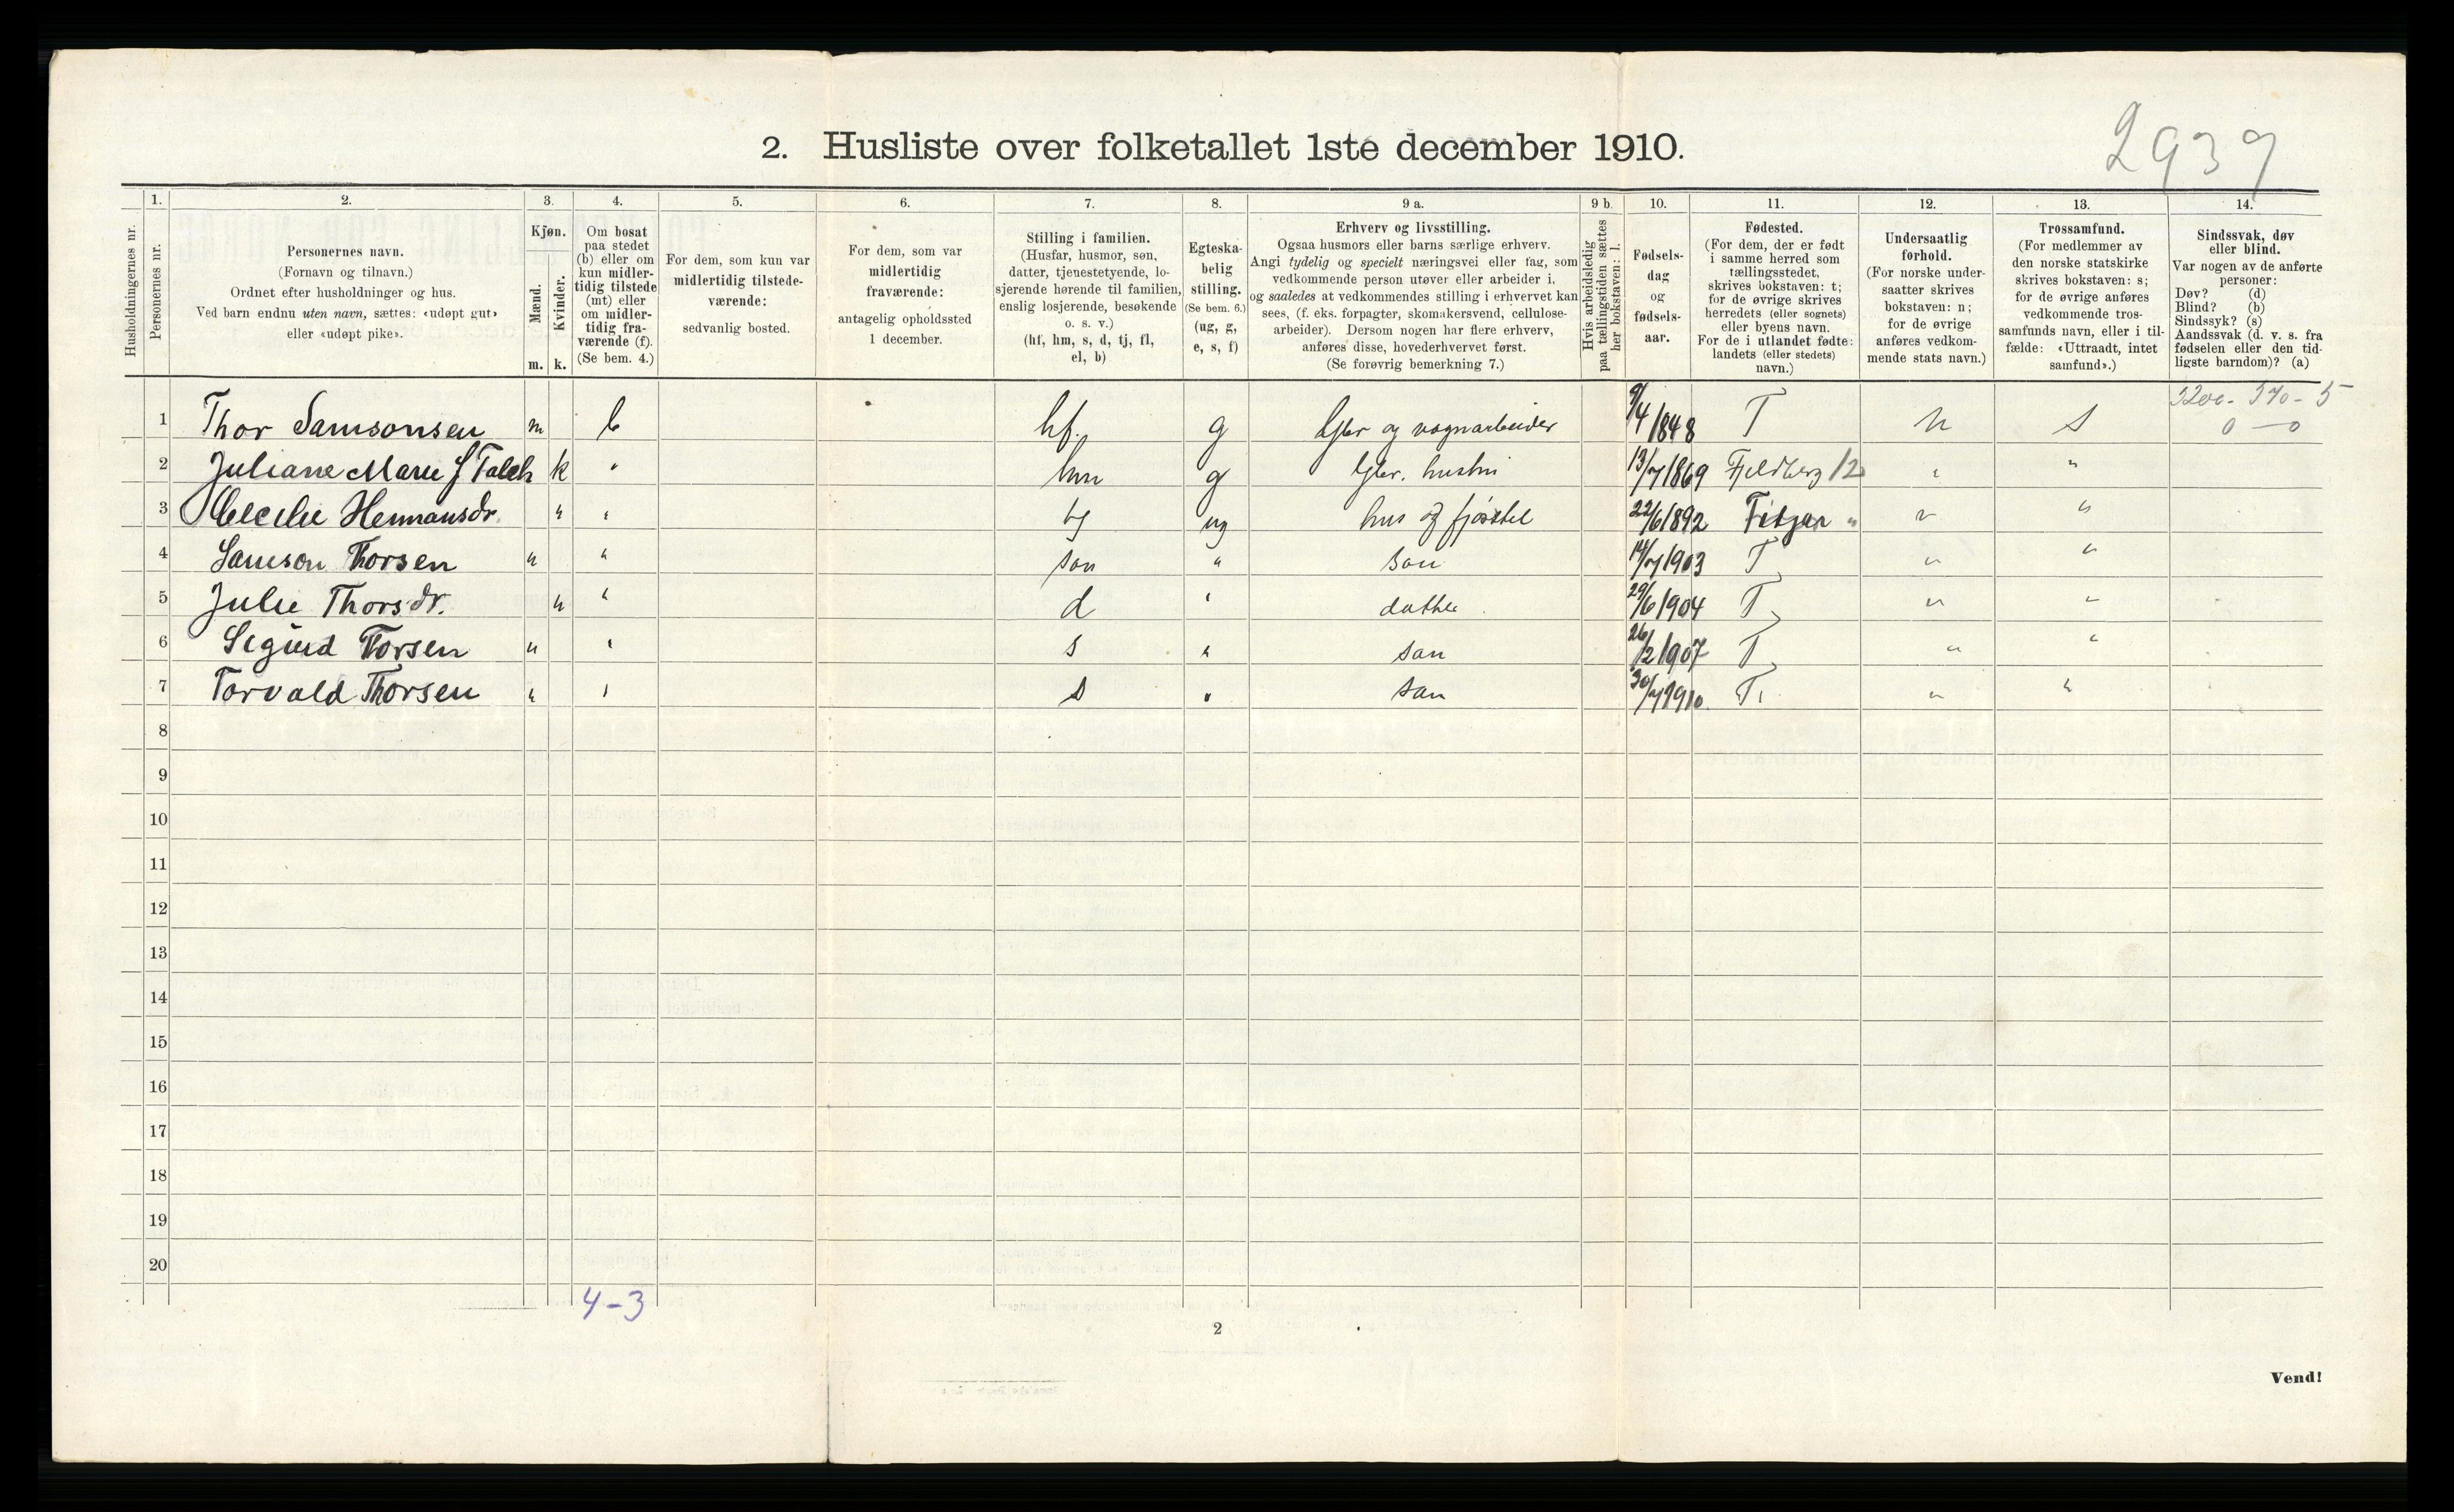 2939
2. Husliste over folketallet 1ste december 1910.
Husholdningernes nr.
1.
Personernes nr.
2.
Personernes navn.
(Fornavn og tilnavn.)
Ordnet efter husholdninger og hus.
Ved barn endnu uten navn, sættes: «udøpt gut»
eller «udøpt pike».
3.
Kjøn.
Mænd.
Kvinder.
m. k.
4.
Om bosat
paa stedet
(b) eller om
kun midler-
tidig tilstede
(mt) eller
om midler-
tidig fra-
værende (f).
(Se bem. 4.)
5.
For dem, som kun var
midlertidig tilstede-
værende:
sedvanlig bosted.
6.
For dem, som var
midlertidig
fraværende:
antagelig opholdssted
1 december.
7.
Stilling i familien.
(Husfar, husmor, søn,
datter, tjenestetyende, lo-
sjerende hørende til familien,
enslig losjerende, besøkende
o. s. v.)
(hf, hm, s, d, tj, fl,
el, b)
8.
Egteska-
belig
stilling.
(Se bem. 6.)
(ug, g,
e, s, f)
9 a.
Erhverv og livsstilling.
Ogsaa husmors eller barns særlige erhverv.
Angi tydelig og specielt næringsvei eller fag, som
vedkommende person utøver eller arbeider i,
og saaledes at vedkommendes stilling i erhvervet kan
sees, (f. eks. forpagter, skomakersvend, cellulose-
arbeider). Dersom nogen har flere erhverv,
anføres disse, hovederhvervet først.
(Se forøvrig bemerkning 7.)
9 b.
Hvis arbeidsledig
paa tællingstiden sættes
her bokstaven: l.
10.
Fødsels-
dag
og
fødsels-
aar.
11.
Fødested.
(For dem, der er født
i samme herred som
tællingsstedet,
skrives bokstaven: t;
for de øvrige skrives
herredets (eller sognets)
eller byens navn.
For de i utlandet fødte:
landets (eller stedets)
navn.)
12.
Undersaatlig
forhold.
(For norske under-
saatter skrives
bokstaven: n;
for de øvrige
anføres vedkom-
mende stats navn.)
13.
Trossamfund.
(For medlemmer av
den norske statskirke
skrives bokstaven: s;
for de øvrige anføres
vedkommende tros-
samfunds navn, eller i til-
fælde: «Uttraadt, intet
samfund».)
14.
Sindssvak, døv
eller blind.
Var nogen av de anførte
personer:
Døv? (d)
Blind? (b)
Sindssyk? (s)
Aandssvak (d. v. s. fra
fødselen eller den tid-
ligste barndom)? (a)
1 Thor Samsonsen m b hf. g Gbr og vognarbeider 9/4 1848 T n s 0 — 0
2 Juliane Marie J Falch k " hm g Gbr. hustru 13/7 1869 Fjeldberg 12 " "
3 Cecilie Hermansdr. " " tj ug hus og fjøsstel 22/6 1892 Fitjar " " "
4 Samson Thorsen " " søn " søn 14/7 1903 T " "
5 Julie Thorsdr. " " d " datter 29/6 1904 T " "
6 Sigurd Torsen " " s " søn 26/2 1907 T " "
7 Torvald Thorsen " " s " søn 30/7 1910. T. " "
8
9
10
11
12
13
14
15
16
17
18
19
20
4-3
2
Vend!